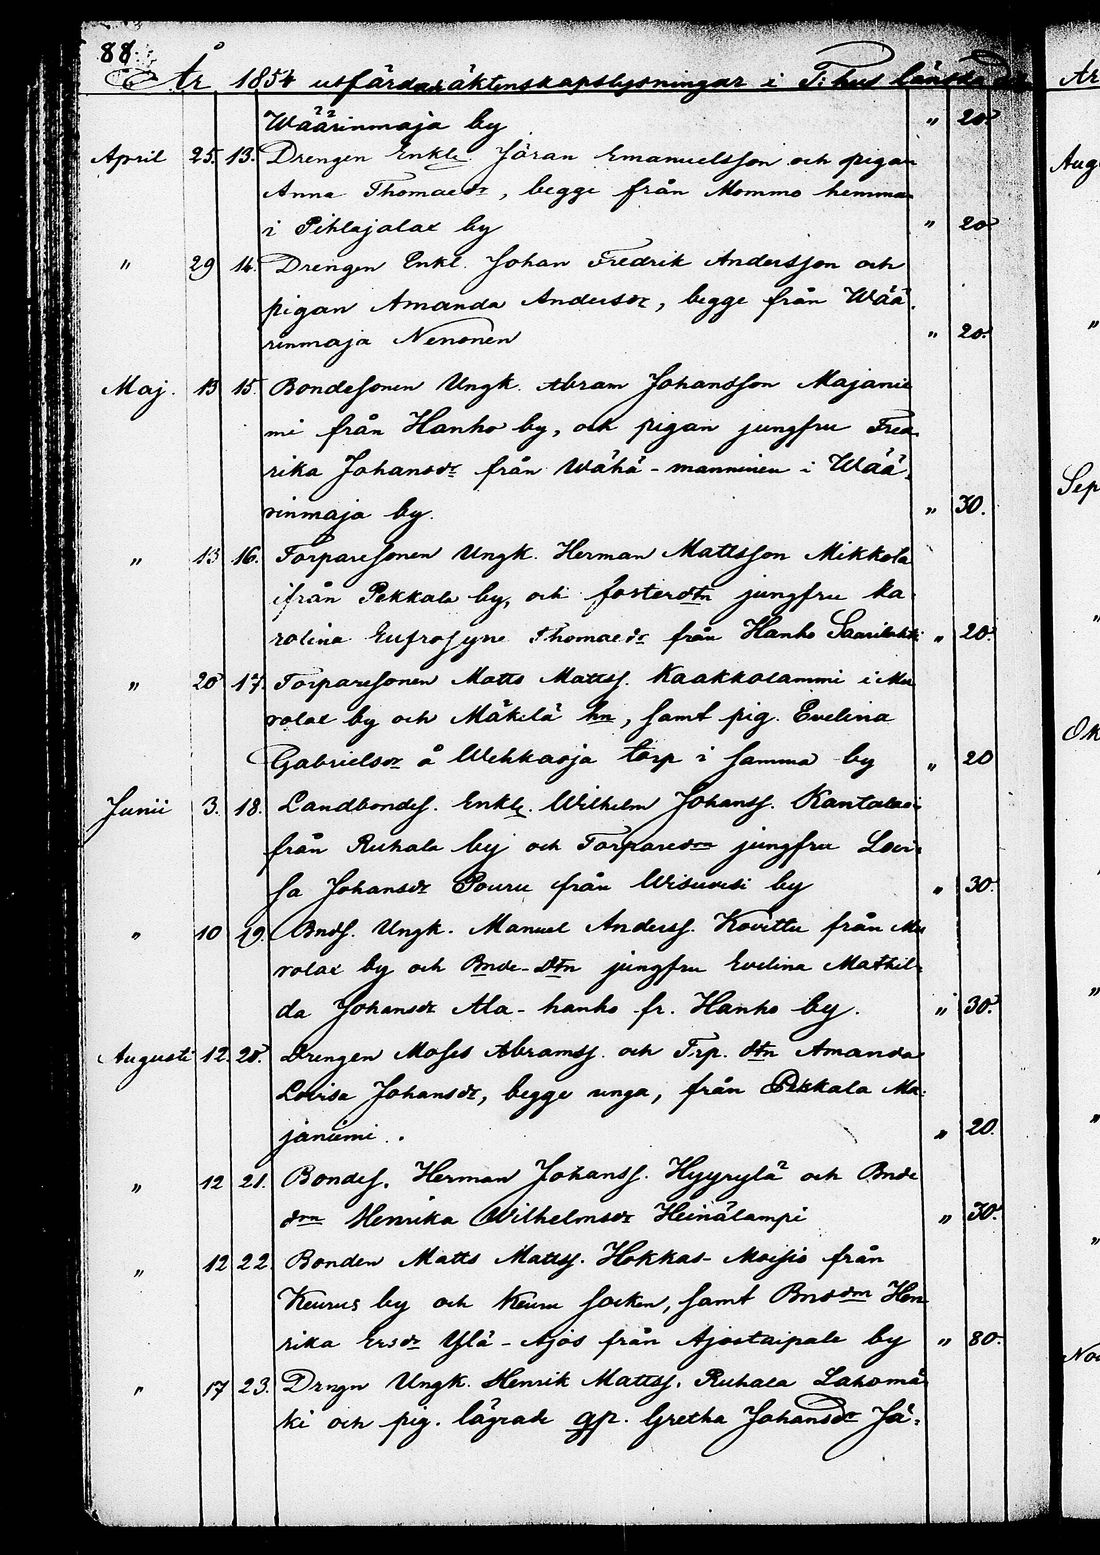 88.
År 1854 utfärdar äktenskapslysningar i
Wäärinmaja by " 20.
April 25. 13. Drengen Enkl. Jöran Emanuelsson och pigan
Anna Thomaedr, begge från Mommo hemma
i Pihlajalax by " 20
" 29 14. Drengen Enkl. Johan Fredrik Andersson och
pigan Amanda Andersdr, begge från Wää-
rinmaja Nenonen " 20.
Maj. 13 15. Bondesonen Ungk. Abram Johansson Majanie
mi från Hanho by, och pigan jungfru Fred-
rika Johansdr från Wähä-manninen i Wää-
rinmaja by. " 30.
" 13 16. Torparesonen Ungk. Herman Mattsson Mikkola
ifrån Pekkala by, och fosterdtn jungfru Ka-
rolina Eufrosyne Thomaedr från Hanho Saarilahti " 20.
" 20 17. Torparesonen Matts Mattss. Kaakkolammi i Mu
rolax by och Mäkelä hn, samt pig. Evelina
Gabrielsdr å Wehkaoja torp i samma by " 20
Junii 3. 18. Landbondes. Enkl. Wilhelm Johanss. Kantalax
från Ruhala by och Torparedrn jungfru Lovi-
sa Johansdr Pouru från Wisuvesi by " 30.
" 10 19. Bnds. Ungk. Manuel Anderss. Kovittu från Mu
rolax by och Bnde-Dtn jungfru Evelina Mathil-
da Johansdr Ala-hanho fr. Hanho by. " 30.
Augusti 12. 20. Drengen Moses Abramss. och Trp. dtn Amanda
Lovisa Johansdr, begge unga, från Pekkala Ma-
janiemi. " 20.
" 12 21. Bondes. Herman Johanss. Hyyrylä och Bnde
drn Henrika Wilhelmsdr Heinälampi " 30.
" 12 22. Bonden Matts Mattss. Hokkas-Moisio från
Keurus by och Keuru socken, samt Bnddrn Hen
rika Ersdr Ylä-Ajos från Ajostaipale by " 80.
" 17 23. Drngn Ungk. Henrik Mattss. Ruhala Lahomä
ki och pig. lägrade qp. Gretha Johansdr Jä-